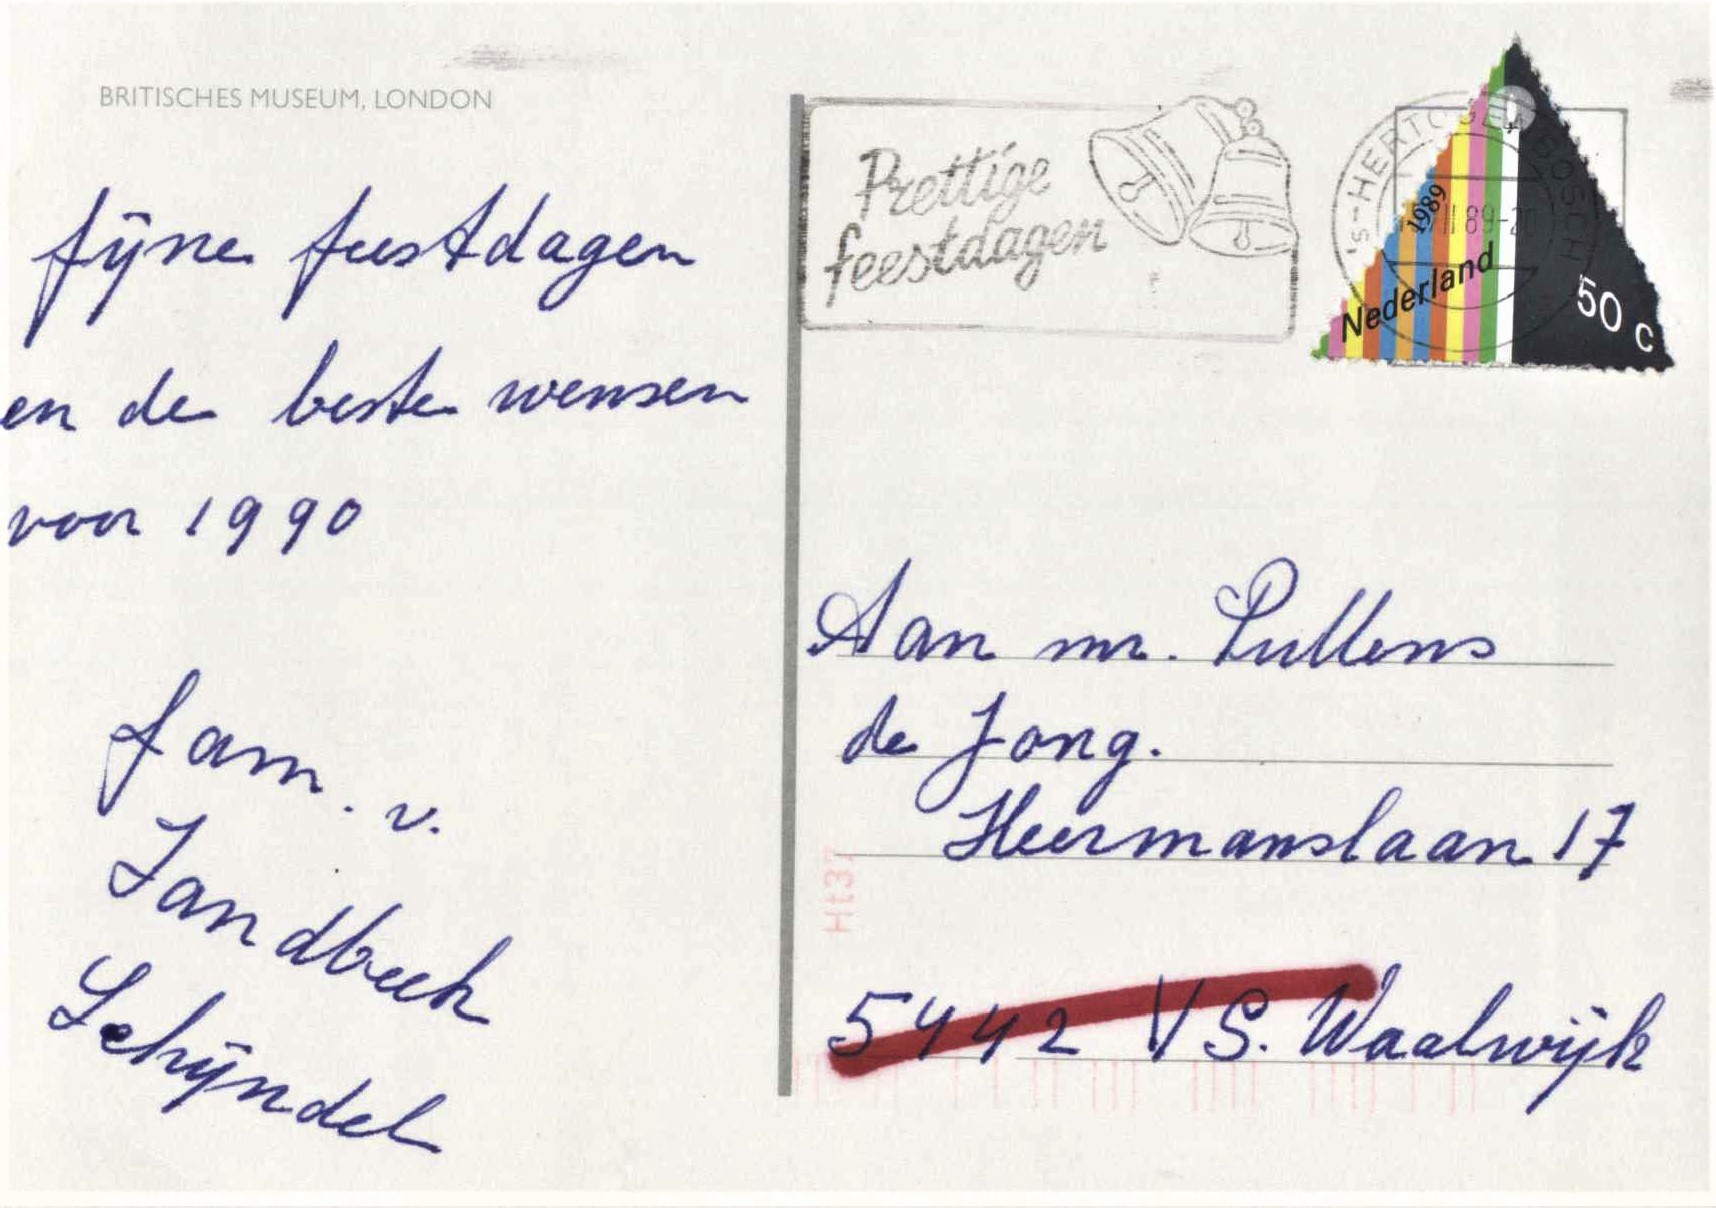 BRITISCHES MUSEUM, LONDON
fijne feestdagen
en de beste wensen
voor 1990
fam. v.
Zandbeek
Schijndel
Prettige
feestdagen
'S-HERTOGENBOSCH
1989
Nederland
50 c
Aan mr. Pullens
de Jong.
Heermanslaan 17
5442 VS. Waalwijk
Ht37